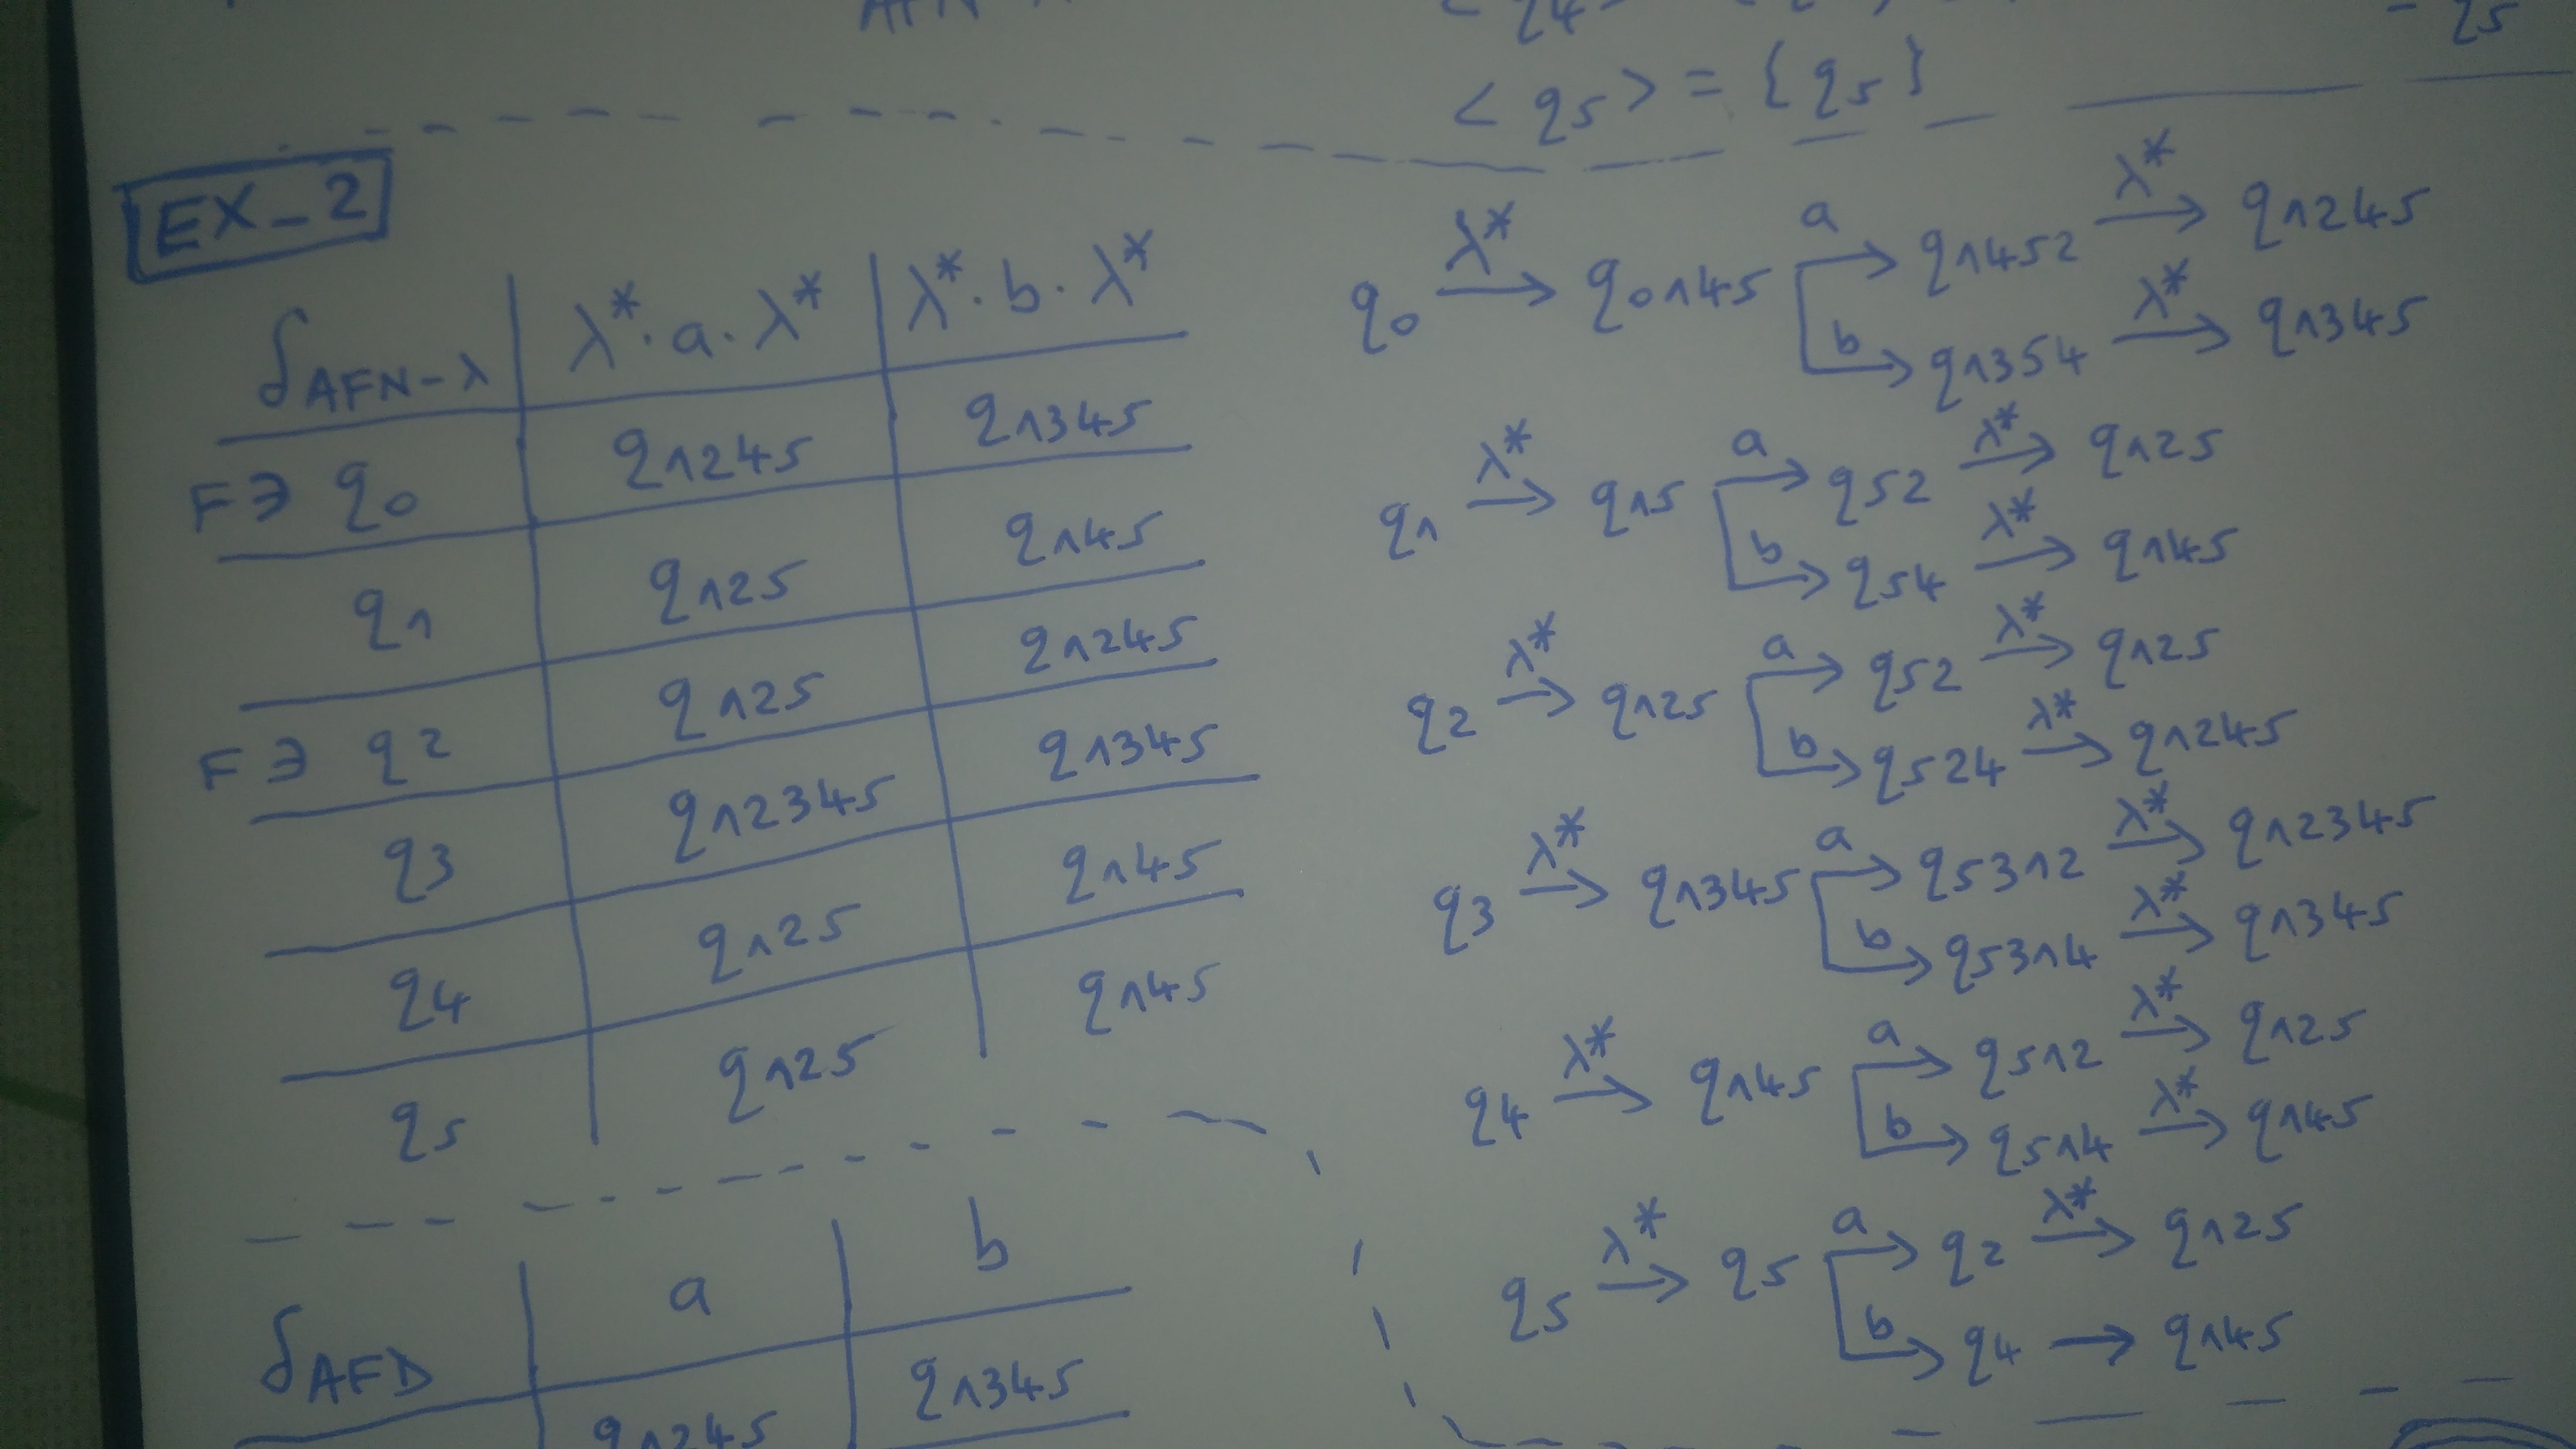 AFN-λ
<q5> = {q5}
EX_2
δAFN-λ | λ*.a.λ* | λ*.b.λ*
F∋ q0 | q1245 | q1345
q1 | q125 | q145
F∋ q2 | q125 | q1245
q3 | q12345 | q1345
q4 | q125 | q145
q5 | q125 | q145
δAFD | a | b
q1245 | q1345
q0 λ*→ q0145 a→ q1452 λ*→ q1245
b→ q1354 λ*→ q1345
q1 λ*→ q15 a→ q52 λ*→ q125
b→ q54 λ*→ q145
q2 λ*→ q125 a→ q52 λ*→ q125
b→ q524 λ*→ q1245
q3 λ*→ q1345 a→ q5312 λ*→ q12345
b→ q5314 λ*→ q1345
q4 λ*→ q145 a→ q512 λ*→ q125
b→ q514 λ*→ q145
q5 λ*→ q5 a→ q2 λ*→ q125
b→ q4 → q145